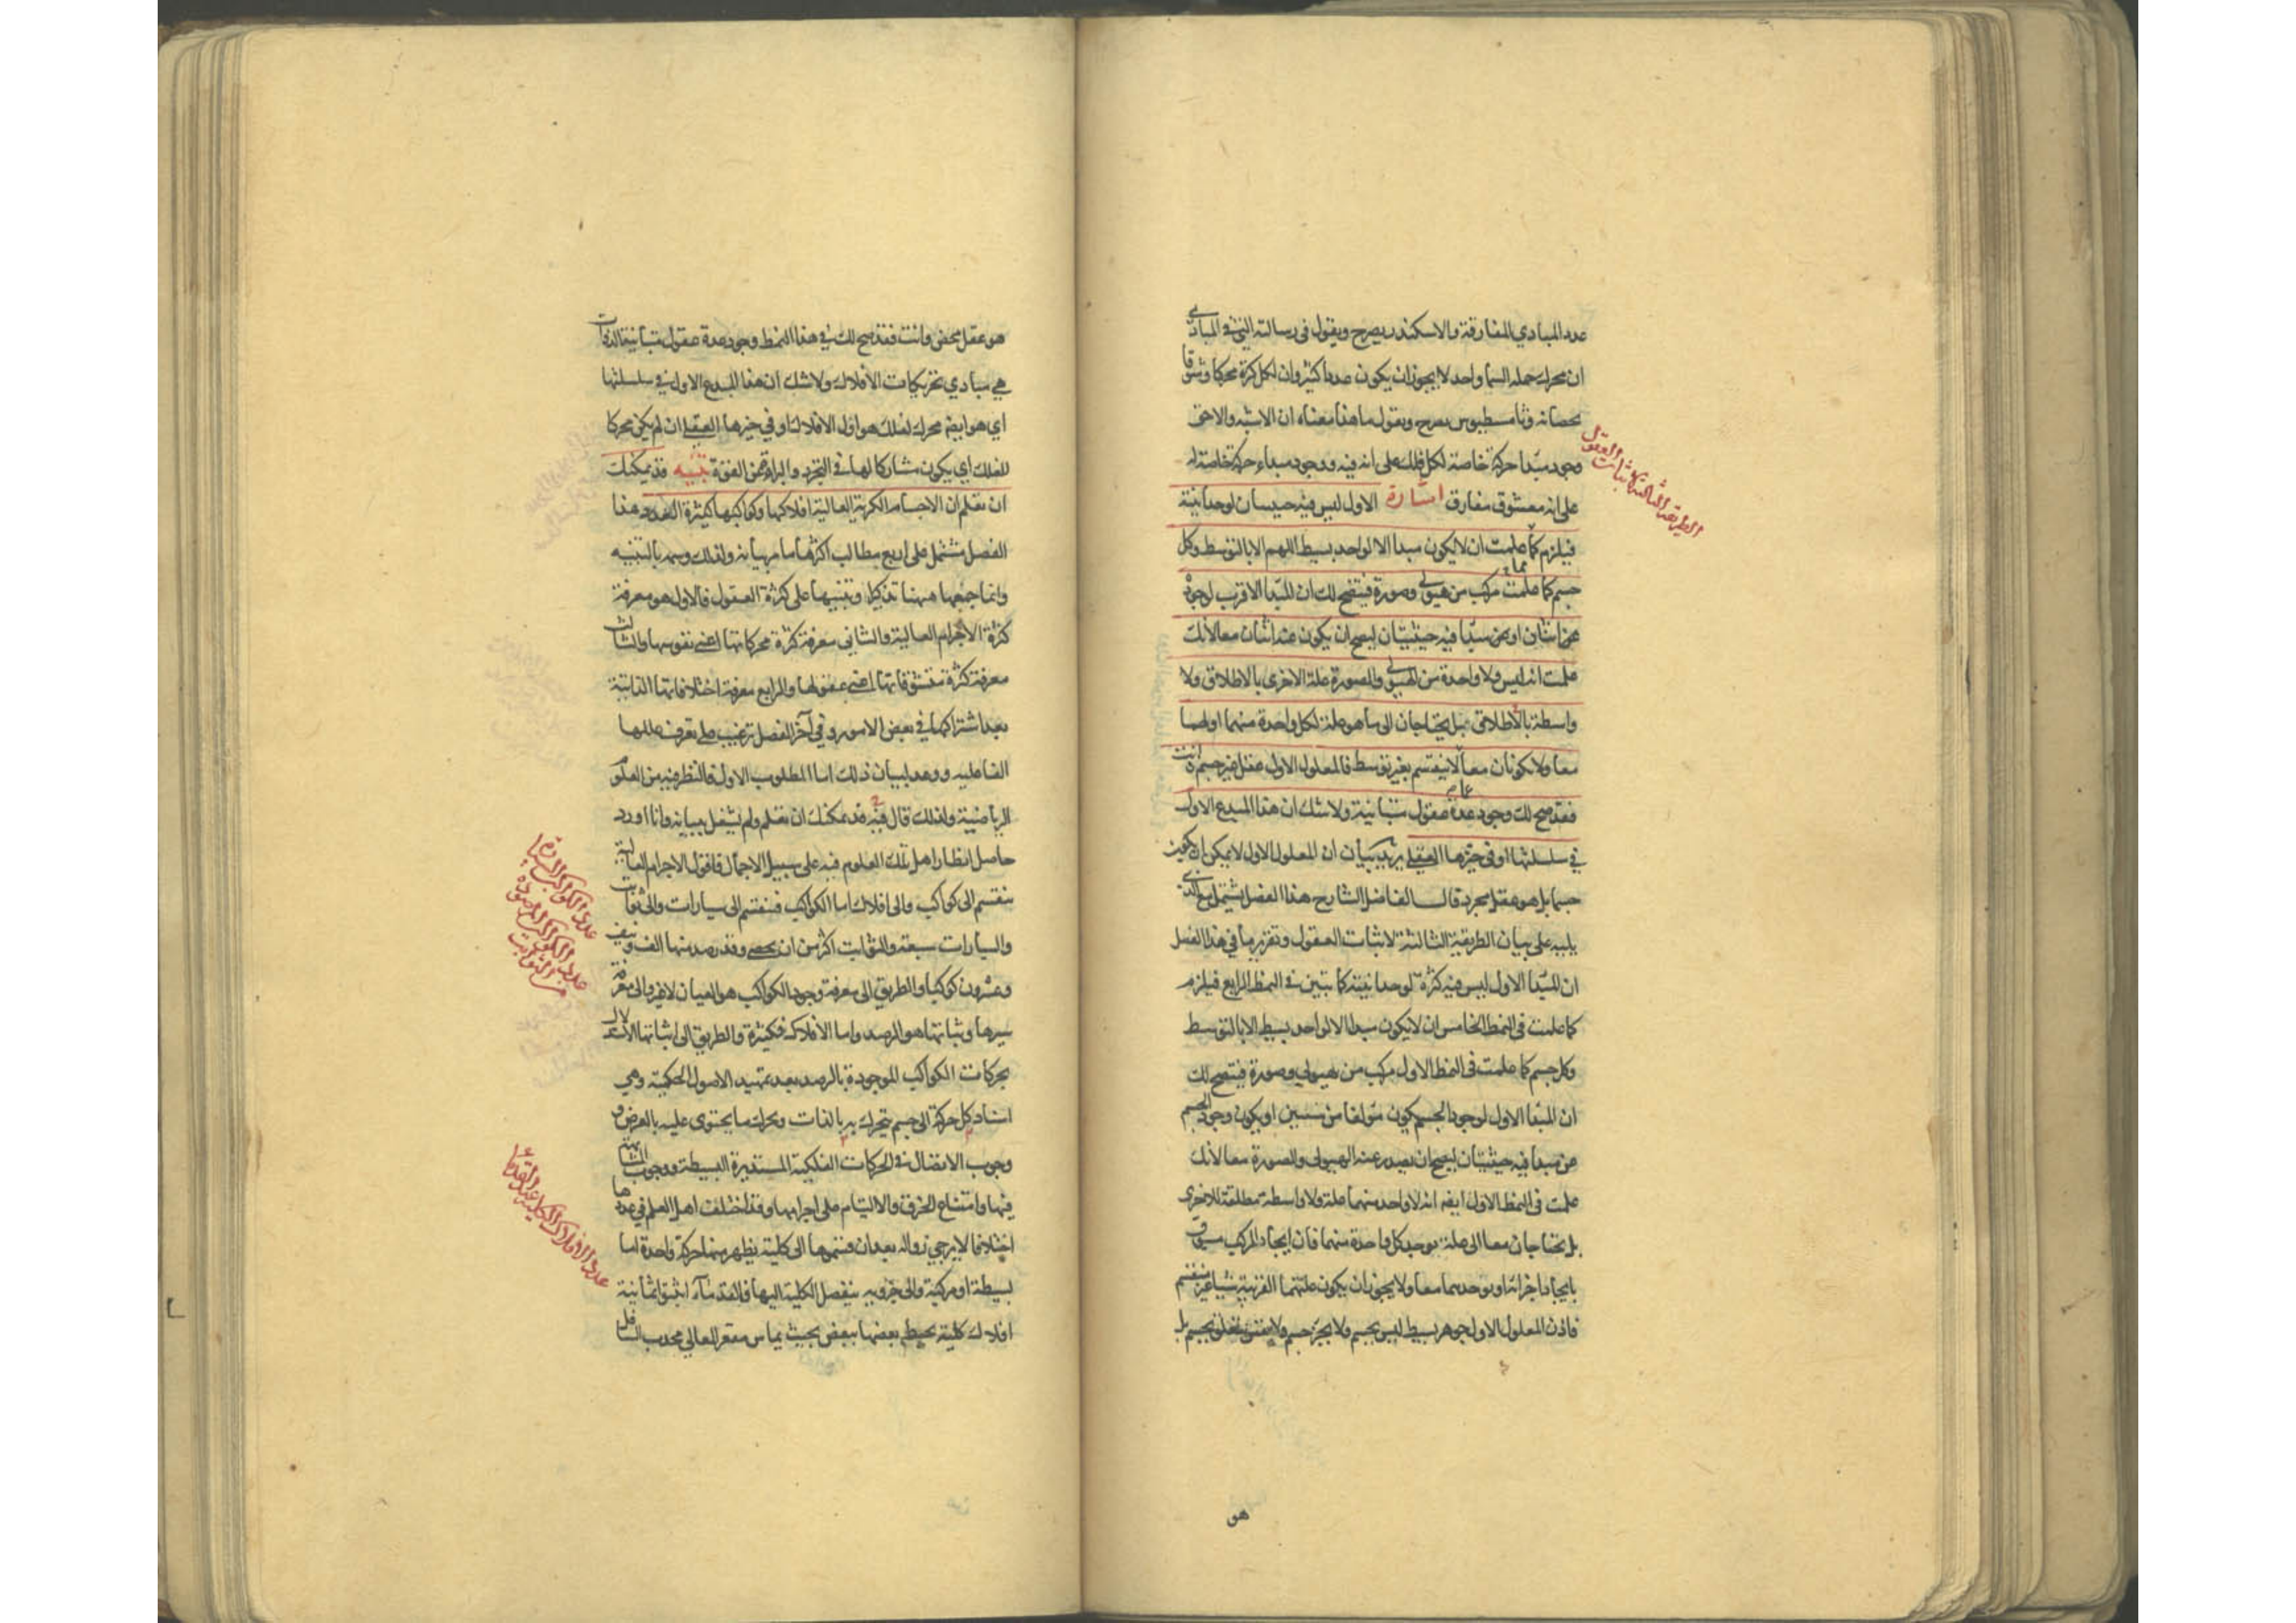 عدد المبادي المفارقة والاسكندر يصرح ويقول في رسالته التي في المبادي
ان محرك جملة السماء واحد لا يجوز ان يكون عددا كثيرا وان لكل كرة محركا وشوقا
يخصانه وثامسطيوس يصرح ويقول ما هذا معناه ان الاشبه والاحق
وجود مبدأ حركة خاصة لكل فلك على انه فيه ووجود مبداء حركة خاصة له
على انه معشوق مفارق اشارة الاول ليس فيه حيثيتان لوحدانيته
فيلزم كما علمت ان لا يكون مبدأ الا لواحد بسيط اللهم الا بالتوسط وكل
جسم كما علمت مركب من هيولى وصورة فيتضح لك ان المبدأ الاقرب لوجوده
عن اثنان او عن مبدأ فيه حيثيتان ليصح ان يكون عنه اثنان معا لانك
علمت انه ليس ولا واحدة من الهيولى والصورة علة الاخرى بالاطلاق ولا
واسطة بالاطلاق بل يحتاجان الى ما هو علة لكل واحدة منهما او لهما
معا ولا يكونان معا لا ينقسم بغير توسط فالمعلول الاول عقل غير جسم وانت
فقد صح لك وجود عدة عقول متباينة ولا شك ان هذا المبدع الاول
في سلسلتها او في حيزها العقلي يريد بيان ان المعلول الاول لا يمكن ان يكون
جسما بل هو عقل مجرد قال الفاضل الشارح هذا الفصل يشتمل مع الذي
يليه على بيان الطريقة الثالثة لاثبات العقول وتقريرها في هذا الفصل
ان المبدأ الاول ليس فيه كثرة لوحدانيته كما تبين في النمط الرابع فيلزم
كما علمت في النمط الخامس ان لا يكون مبدأ الا لواحد بسيط الا بالتوسط
وكل جسم كما علمت في النمط الاول مركب من هيولى وصورة فيتضح لك
ان المبدأ الاول لوجود الجسم يكون مؤلفا من شيئين او يكون وجود الجسم
عن مبدأ فيه حيثيتان ليصح ان يصدر عنه الهيولى والصورة معا لانك
علمت في النمط الاول ايضا انه لا واحد منهما علة ولا واسطة مطلقة للاخرى
بل يحتاجان معا الى علة توجد كل واحدة منهما فان ايجاد المركب مسبوق
بايجاد اجزائه او توجدهما معا ولا يجوز ان يكون علتهما القريبة شيئا غير منقسم
فاذن المعلول الاول جوهر بسيط ليس بجسم ولا بجزء جسم ولا متعلق بجسم بل
هو
الطريقة الثالثة لاثبات العقول
هو عقل محض وانت فقد صح لك في هذا النمط وجود عدة عقول متباينة الذوات
هي مبادي تحريكات الافلاك ولا شك ان هذا المبدع الاول في سلسلتها
اي هو ايضا محرك لفلك هو اول الافلاك او في حيزها العقلي ان لم يكن محركا
للفلك اي يكون مشاركا لها في التجرد والبراءة عن القوة تنبيه قد يمكنك
ان تعلم ان الاجسام الكرية العالية افلاكها وكواكبها كثيرة العدد هذا
الفصل مشتمل على اربع مطالب اكثرها ما مر بيانه ولذلك وسمه بالتنبيه
وانما جمعها ههنا تذكيرا وتنبيها على كثرة العقول فالاول هو معرفة
كثرة الاجرام العالية والثاني معرفة كثرة محركاتها اعني نفوسها والثالث
معرفة كثرة متشوقاتها اعني عقولها والرابع معرفة اختلافاتها الذاتية
بعد اشتراكها في بعض الامور وفي آخر الفصل ترغيب على تعرف عللها
الفاعلية ووعد لبيان ذلك اما المطلوب الاول فالنظر فيه من العلوم
الرياضية ولذلك قال فيه قد يمكنك ان تعلم ولم يشتغل ببيانه وانا اورد
حاصل انظار اهل تلك العلوم فيه على سبيل الاجمال فاقول الاجرام العالية
تنقسم الى كواكب والى افلاك اما الكواكب فتنقسم الى سيارات والى ثوابت
والسيارات سبعة والثوابت اكثر من ان يحصى وقد رصد منها الف ونيف
وعشرون كوكبا والطريق الى معرفة وجود الكواكب هو العيان لا غير والى معرفة
سيرها وثباتها هو الرصد واما الافلاك فكثيرة والطريق الى اثباتها الاستدلال
بحركات الكواكب الموجودة بالرصد بعد تمهيد الاصول الحكمية وهي
اسناد كل حركة الى جسم يتحرك بها بالذات ويحرك ما يحتوي عليه بالعرض و
وجوب الاتصال في الحركات الفلكية المستديرة البسيطة ووجوب التشابه
فيها وامتناع الخرق والالتيام على اجرامها وقد اختلف اهل العلم في عددها
اختلافا لا يرجى زواله بعد ان قسموها الى كلية يظهر منها حركة واحدة اما
بسيطة او مركبة والى جزوية ينفصل الكلية اليها فالقدماء اثبتوا ثمانية
افلاك كلية يحيط بعضها ببعض بحيث يماس مقعر العالي محدب السافل
عدد الكواكب السيارة
عدد الكواكب المرصودة
من الثوابت
عدد الافلاك الكلية عند القدماء